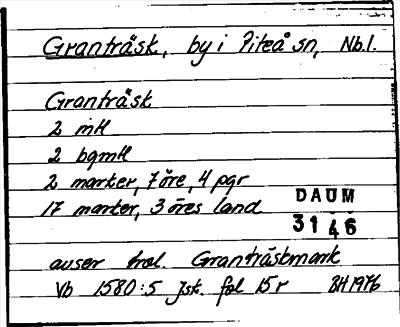 Granträsk, by i Piteå sn, Nb.l.
Granträsk
2 mtl
2 bqmtl
2 marker, 7 öre, 4 pgr
17 marker, 3 öres land
DAUM
3146
avser trol. Granträskmark
Vb 1580:5 Jsk. fol 15 r BH 1976